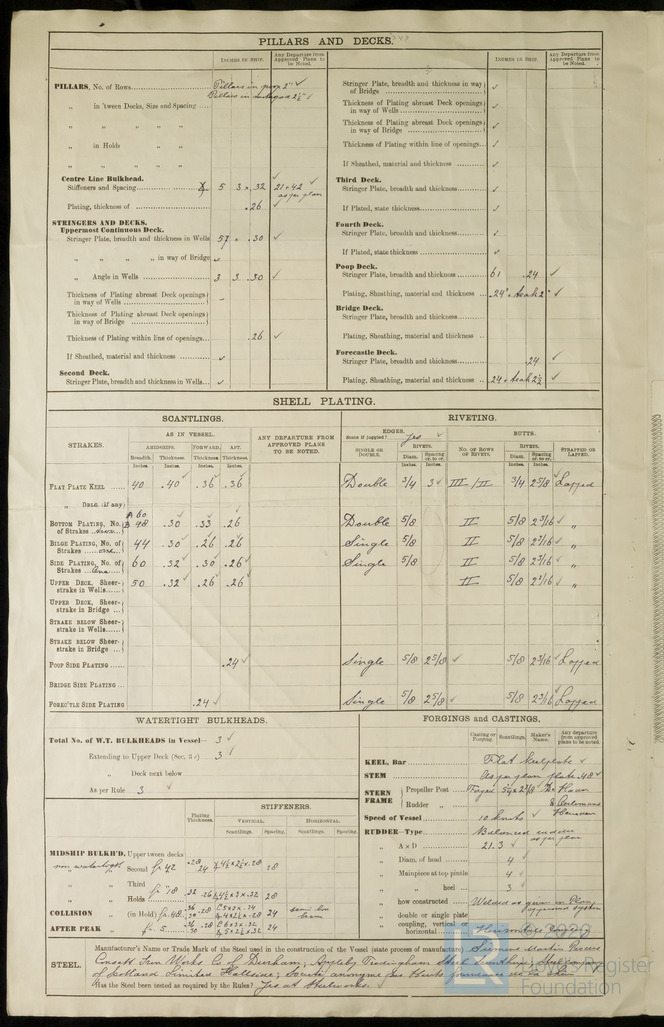 PILLARS AND DECKS.
INCHES IN SHIP.
Any Departure from Approved Plans to be Noted.
PILLARS, No. of Rows
Pillars in poop 2" ✓
„ in 'tween Decks, Size and Spacing
„ „ „ „ „
„ in Holds
„ „ „ „ „
Centre Line Bulkhead.
Stiffeners and Spacing 5 3 × .32 21 + 42 ✓
as per plan
Plating, thickness of .26 ✓
STRINGERS AND DECKS.
Uppermost Continuous Deck.
Stringer Plate, breadth and thickness in Wells 57 × .30 ✓
„ „ „ „ in way of Bridge
„ Angle in Wells 3 3 .30 ✓
Thickness of Plating abreast Deck openings in way of Wells
Thickness of Plating abreast Deck openings in way of Bridge
Thickness of Plating within line of openings .26 ✓
If Sheathed, material and thickness ✓
Second Deck.
Stringer Plate, breadth and thickness in Wells ✓
INCHES IN SHIP.
Any Departure from Approved Plans to be Noted.
Stringer Plate, breadth and thickness in way of Bridge ✓
Thickness of Plating abreast Deck openings in way of Wells ✓
Thickness of Plating abreast Deck openings in way of Bridge ✓
Thickness of Plating within line of openings ✓
If Sheathed, material and thickness ✓
Third Deck.
Stringer Plate, breadth and thickness ✓
If Plated, state thickness ✓
Fourth Deck.
Stringer Plate, breadth and thickness ✓
If Plated, state thickness ✓
Poop Deck.
Stringer Plate, breadth and thickness 61 .24 ✓
Plating, Sheathing, material and thickness .24" + teak 2" ✓
Bridge Deck.
Stringer Plate, breadth and thickness
Plating, Sheathing, material and thickness
Forecastle Deck.
Stringer Plate, breadth and thickness .24 ✓
Plating, Sheathing, material and thickness .24 + teak 2½ ✓
SHELL PLATING.
SCANTLINGS.
RIVETING.
STRAKES.
AS IN VESSEL.
AMIDSHIPS. FORWARD. AFT.
Breadth. Thickness. Thickness. Thickness.
Inches. Inches. Inches. Inches.
ANY DEPARTURE FROM APPROVED PLANS TO BE NOTED.
EDGES.
State if joggled? yes ✓
SINGLE OR DOUBLE.
RIVETS.
Diam. Spacing cr. to cr.
BUTTS.
No. of ROWS OF RIVETS.
RIVETS.
Diam. Spacing cr. to cr.
STRAPPED OR LAPPED.
FLAT PLATE KEEL 40 .40 .36 .36 Double 3/4 3 ✓ III / II 3/4 2 5/8 Lapped
„ DBLG. (if any)
A 60
BOTTOM PLATING, No. of Strakes B 48 .30 .33 .26 Double 5/8 II 5/8 2 3/16 „
BILGE PLATING, No. of Strakes one 44 .30 .26 .26 Single 5/8 II 5/8 2 3/16 „
SIDE PLATING, No. of Strakes One 60 .32 .30 .26 Single 5/8 II 5/8 2 3/16 „
UPPER DECK, Sheerstrake in Wells 50 .32 .26 .26 II 5/8 2 3/16 „
UPPER DECK, Sheerstrake in Bridge
STRAKE BELOW Sheerstrake in Wells
STRAKE BELOW Sheerstrake in Bridge
POOP SIDE PLATING .24 Single 5/8 2 5/8 ✓ 5/8 2 3/16 Lapped
BRIDGE SIDE PLATING
FOREC'TLE SIDE PLATING .24 Single 5/8 2 5/8 ✓ 5/8 2 3/16 Lapped
WATERTIGHT BULKHEADS.
Total No. of W.T. BULKHEADS in Vessel— 3 ✓
Extending to Upper Deck (Sec. 3 c) 3 ✓
„ Deck next below
As per Rule 3 ✓
STIFFENERS.
Plating Thickness.
VERTICAL. HORIZONTAL.
Scantlings. Spacing. Scantlings. Spacing.
MIDSHIP BULKH'D, Upper tween decks
non watertight „ Second fr 42
„ Third
„ Holds fr 18
COLLISION „ (in Hold) fr 48
AFTER PEAK „ fr 5
FORGINGS and CASTINGS.
Casting or Forging. Scantlings. Maker's Name. Any departure from approved plans to be noted.
KEEL, Bar Flat keelplate ✓
STEM As per plan plate .48 ✓
STERN FRAME { Propeller Post
Rudder „
Speed of Vessel 10 knots ✓
RUDDER—Type Balanced rudder as per plan
„ A x D 21.3 ✓
„ Diam. of head 4 ✓
„ Mainpiece at top pintle 4 ✓
„ „ heel 3 ✓
„ how constructed Welded as given in Plan, approved system
„ double or single plate
„ coupling, vertical or horizontal Horizontal
STEEL.
Manufacturer's Name or Trade Mark of the Steel used in the construction of the Vessel (state process of manufacture) Siemens Martin Process
Consett Iron Works Co of Durham; Appleby Frodingham Steel Scunthorpe; Steel Company
of Scotland Limited Hallside; Societe anonyme des Hauts fourneaux
Has the Steel been tested as required by the Rules? Yes at Steelworks.
Lloyd's Register
Foundation